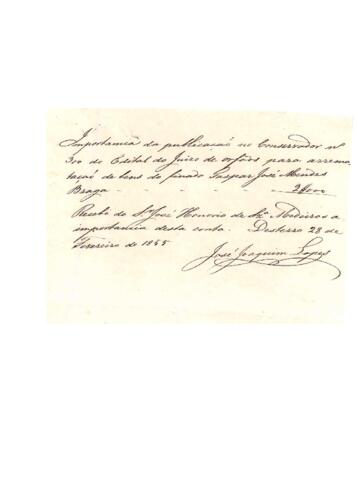 Importancia da publicacaõ no Conservador nº
300 do Edital do Juizo de orfaõs para arrema
tacaõ de bens do finado Gaspar José Mendes
Braga - - - - 2$000
Recebi do Sr José Honorio de Sza Medeiros a
importancia desta conta. Desterro 28 de
Fevereiro de 1855
José Joaquim Lopes